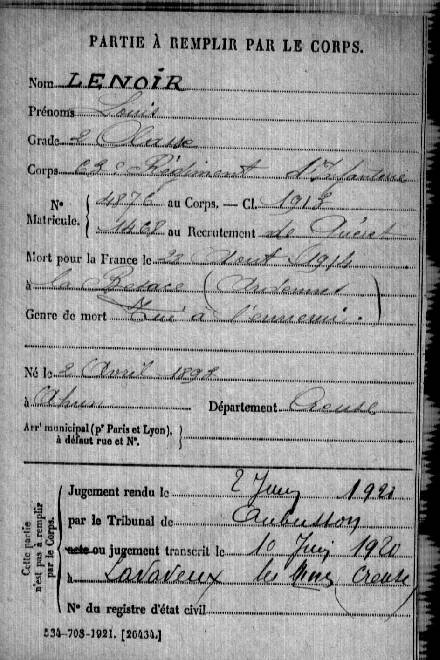 PARTIE À REMPLIR PAR LE CORPS.
Nom LENOIR
Prénoms Louis
Grade 2e Classe
Corps 63e Régiment d'Infanterie
No Matricule. 4876 au Corps. — Cl. 1912
1468 au Recrutement de Guéret
Mort pour la France le 28 Août 1914
à la Besace (Ardennes)
Genre de mort Tué à l'ennemi.
Né le 2 Avril 1892
à Ahun Département Creuse
Arrt municipal (pr Paris et Lyon), à défaut rue et No.
Cette partie n'est pas à remplir par le Corps.
Jugement rendu le 2 Juin 1920
par le Tribunal de Aubusson
acte ou jugement transcrit le 10 Juin 1920
à Lavaveix les Mines (Creuse)
No du registre d'état civil
534-708-1921. [26434.]